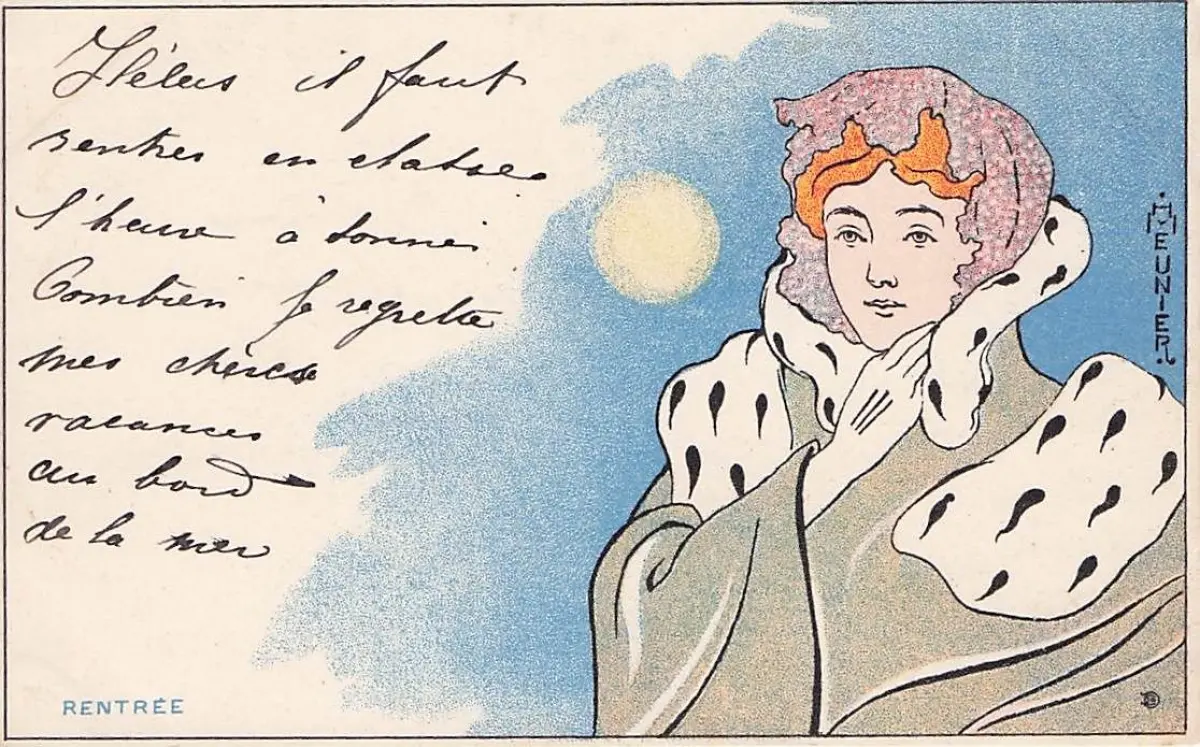 Hélas il faut
rentrer en classe
l'heure à sonné
Combien je regrette
mes chères
vacances
au bord
de la mer
RENTRÉE
H MEUNIER